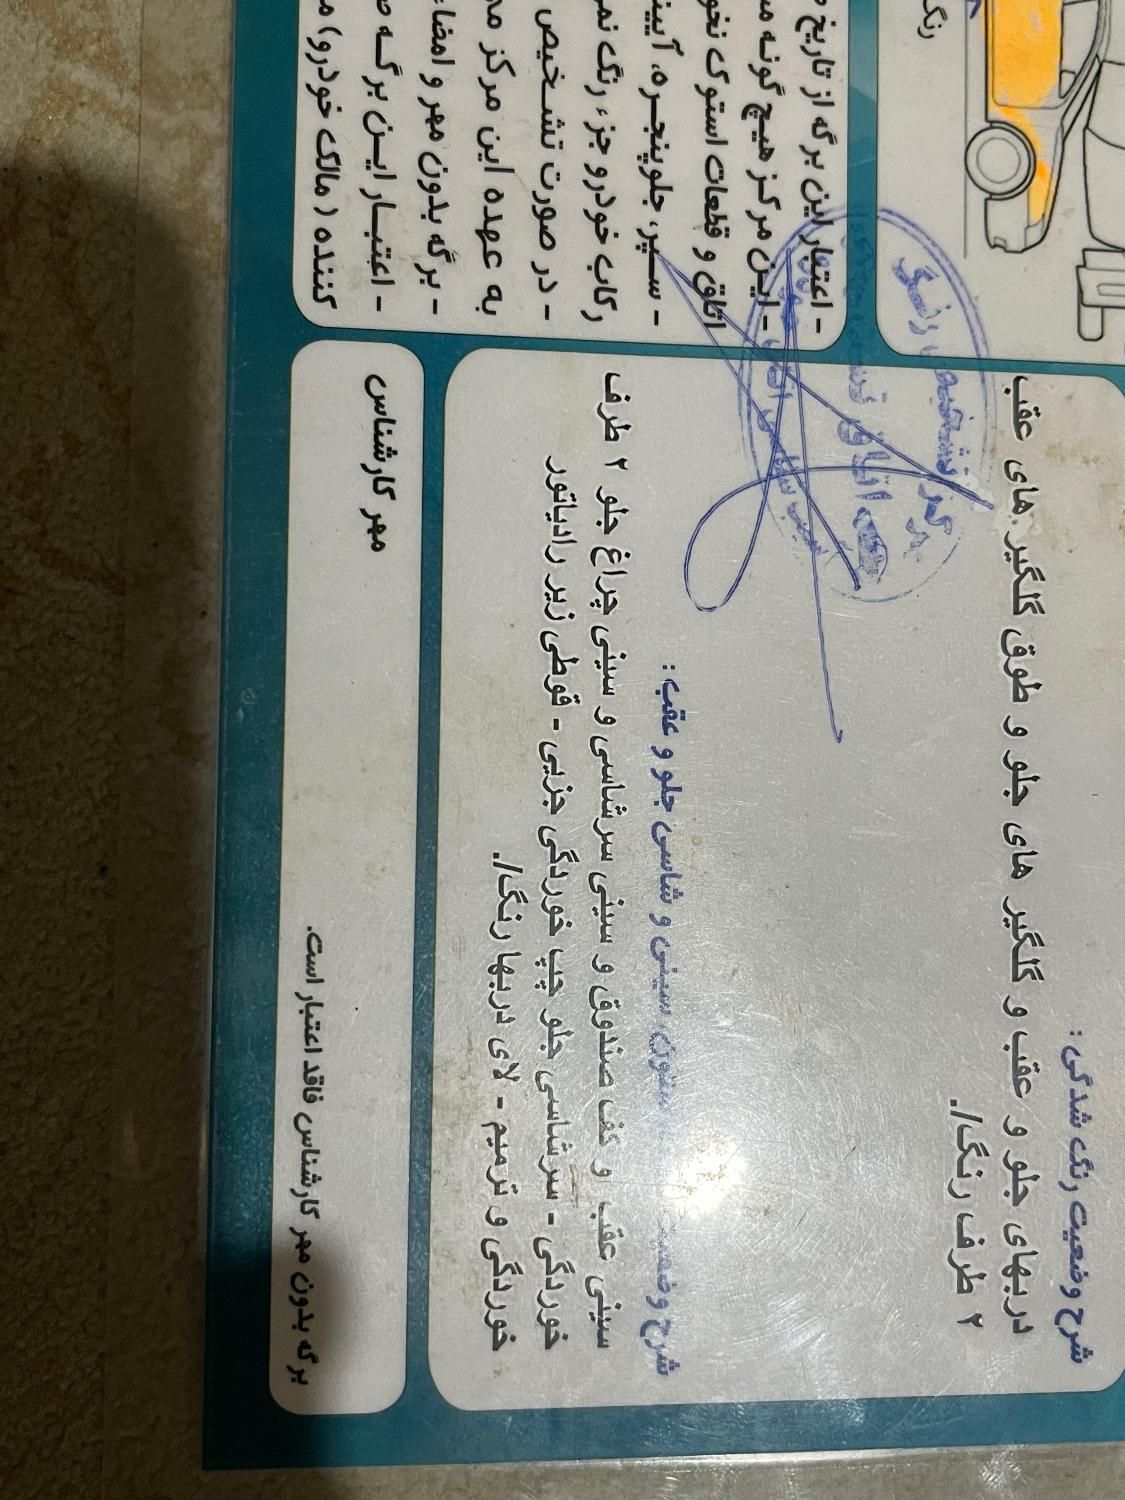 رنگ
شرح وضعیت رنگ شدگی :
دربهای جلو و عقب و گلگیر های جلو و طوق گلگیر های عقب
۲ طرف رنگ/.
شرح وضعیت ستون، سینی و شاسی جلو و عقب :
سینی عقب و کف صندوق و سینی سرشاسی و سینی چراغ جلو ۲ طرف
خوردگی - سرشاسی جلو چپ خوردگی جزیی - قوطی زیر رادیاتور
خوردگی و ترمیم - لای دربها رنگ/.
- اعتبار این برگه از تاریخ
- این مرکز هیچ گونه
اتاق و قطعات استوک
- سپر، جلوپنجره، آیینه
رکاب خودرو جزء رنگ
- در صورت تشخیص
به عهده این مرکز
- برگه بدون مهر و امضاء
- اعتبار این برگه
کننده ( مالک خودرو)
مهر کارشناس
برگه بدون مهر کارشناس فاقد اعتبار است.